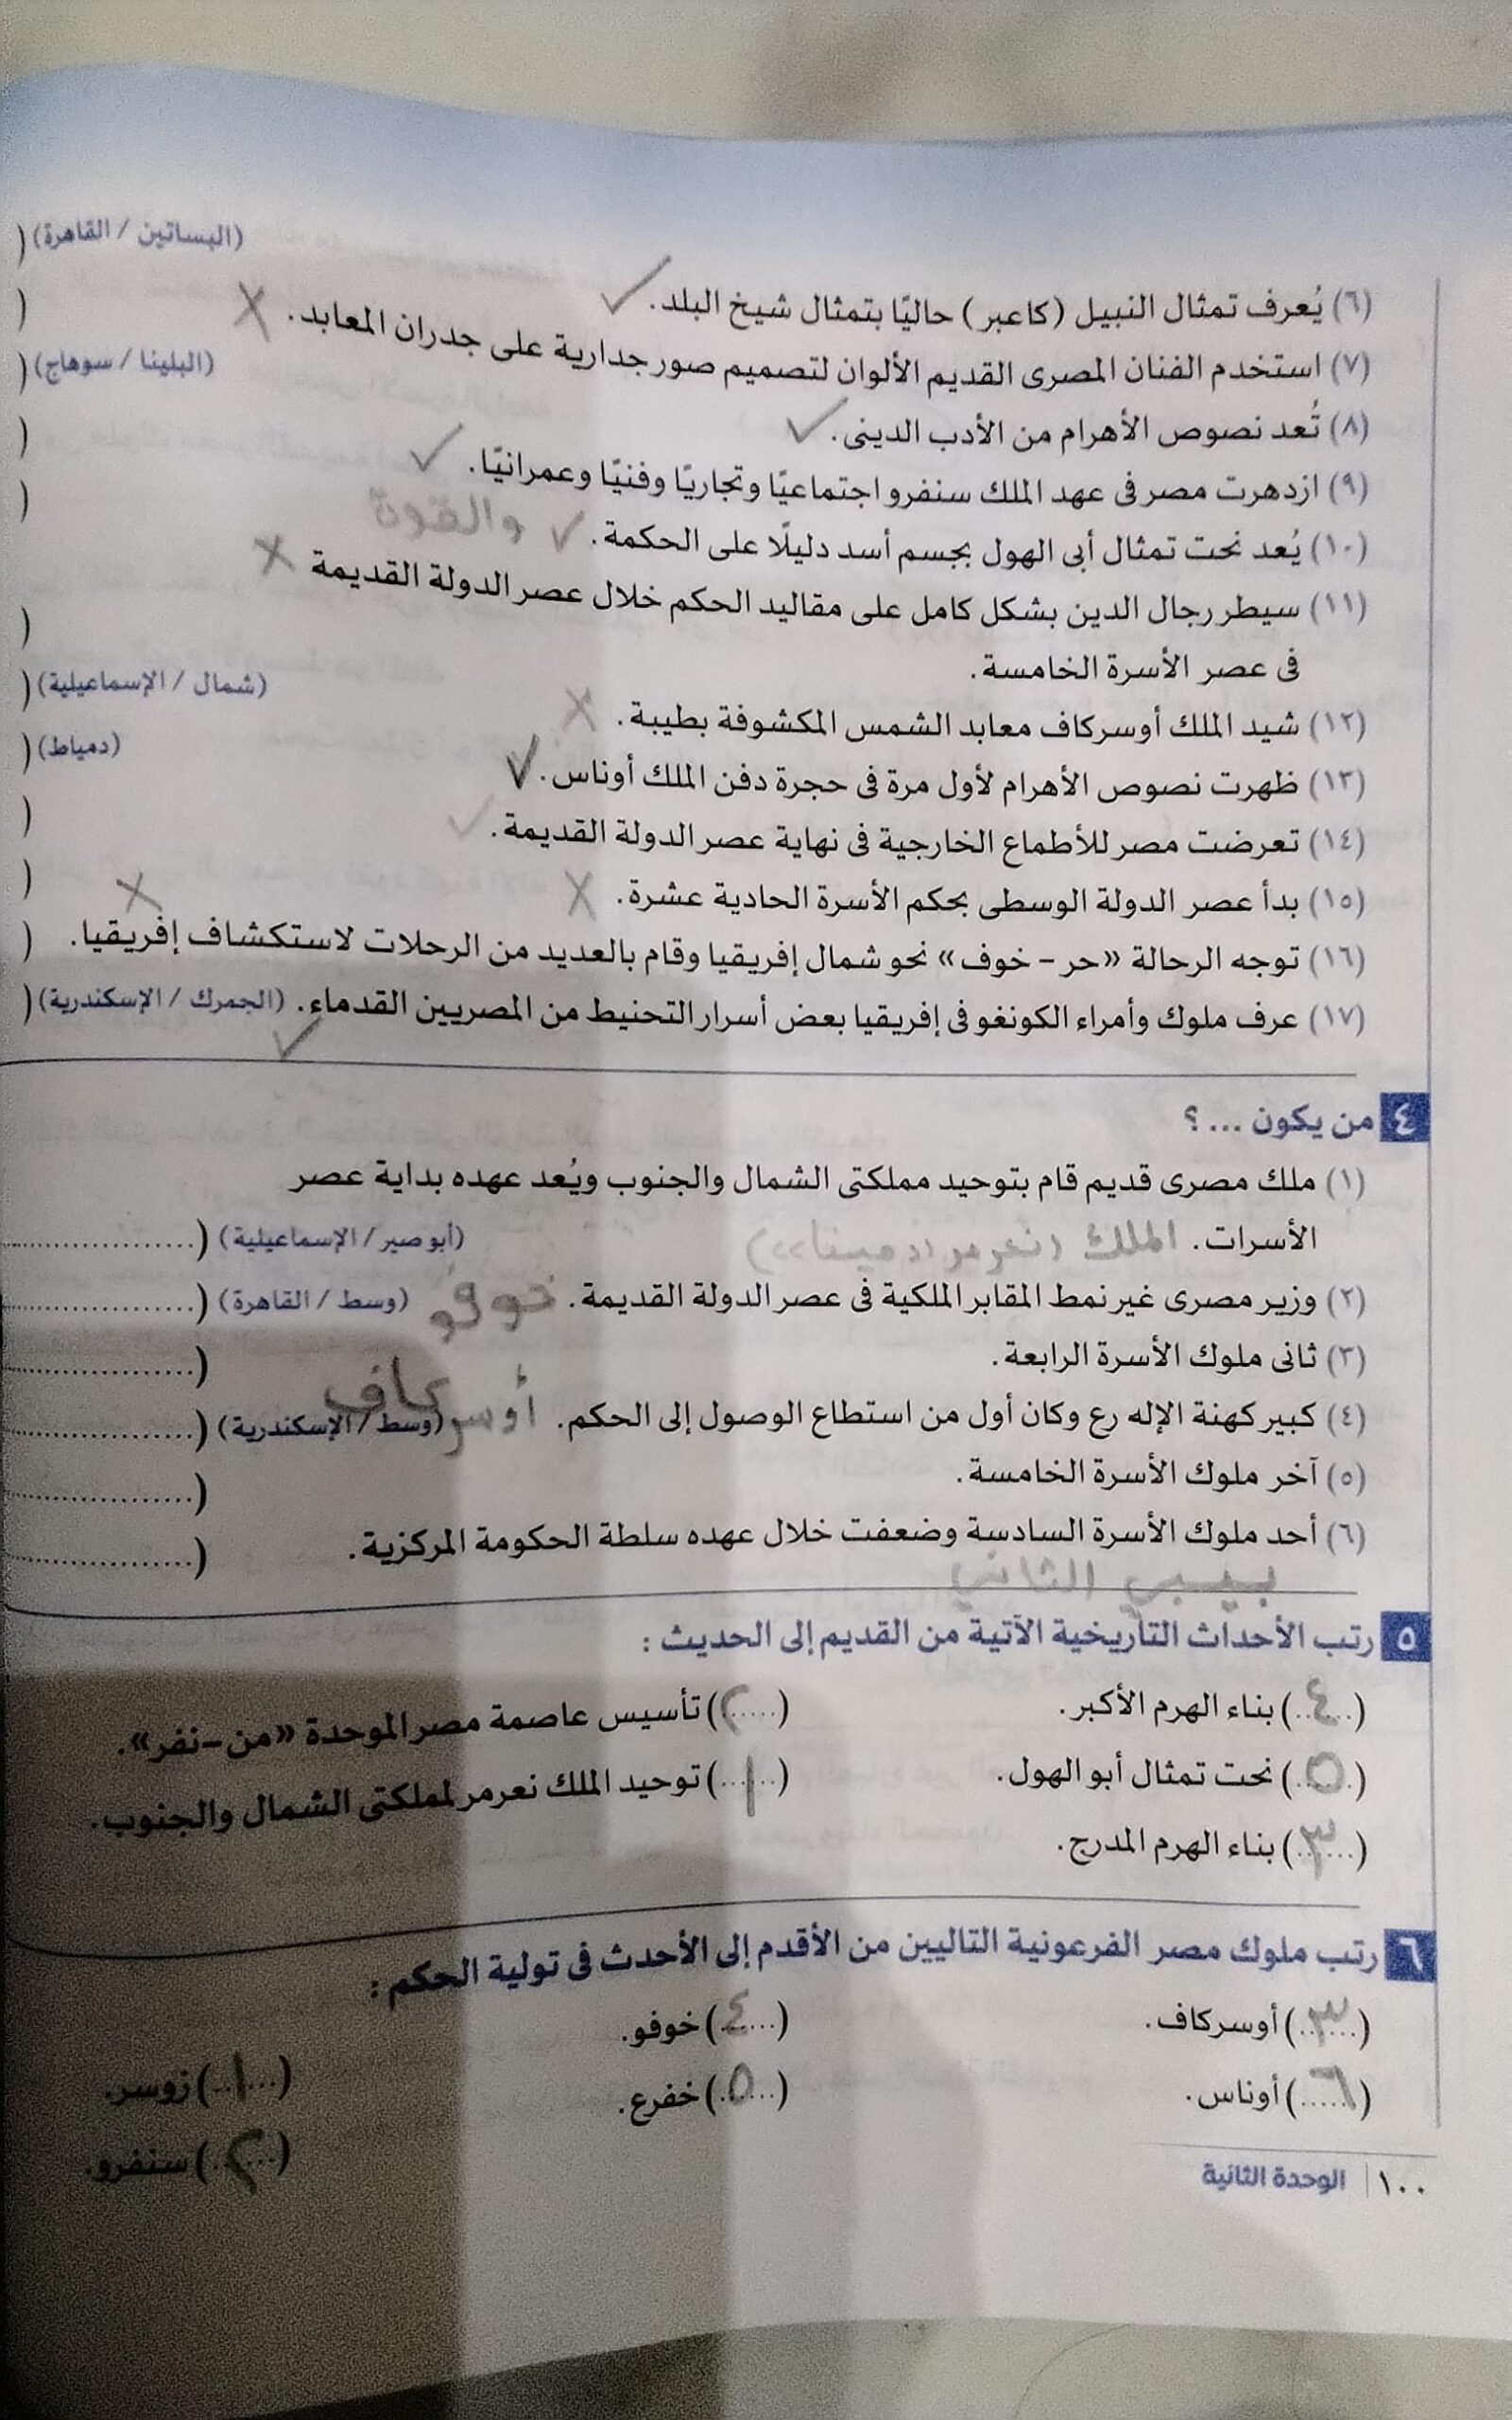 (البساتين / القاهرة) (
(٦) يُعرف تمثال النبيل (كاعبر) حاليًا بتمثال شيخ البلد. ✓ (
(٧) استخدم الفنان المصرى القديم الألوان لتصميم صور جدارية على جدران المعابد. X (البلينا / سوهاج) (
(٨) تُعد نصوص الأهرام من الأدب الدينى. ✓ (
(٩) ازدهرت مصر فى عهد الملك سنفرو اجتماعيًا وتجاريًا وفنيًا وعمرانيًا. ✓ (
(١٠) يُعد نحت تمثال أبى الهول بجسم أسد دليلًا على الحكمة. ✓ والقوة
(١١) سيطر رجال الدين بشكل كامل على مقاليد الحكم خلال عصر الدولة القديمة X
فى عصر الأسرة الخامسة. (
(١٢) شيد الملك أوسركاف معابد الشمس المكشوفة بطيبة. X (شمال / الإسماعيلية) (
(١٣) ظهرت نصوص الأهرام لأول مرة فى حجرة دفن الملك أوناس. ✓ (دمياط) (
(١٤) تعرضت مصر للأطماع الخارجية فى نهاية عصر الدولة القديمة. ✓ (
(١٥) بدأ عصر الدولة الوسطى بحكم الأسرة الحادية عشرة. X (
(١٦) توجه الرحالة «حر - خوف» نحو شمال إفريقيا وقام بالعديد من الرحلات لاستكشاف إفريقيا. X (
(١٧) عرف ملوك وأمراء الكونغو فى إفريقيا بعض أسرار التحنيط من المصريين القدماء. ✓ (الجمرك / الإسكندرية) (
٤ من يكون ... ؟
(١) ملك مصرى قديم قام بتوحيد مملكتى الشمال والجنوب ويُعد عهده بداية عصر
الأسرات. الملك (نعرمر "مينا") (أبو صير / الإسماعيلية) (....................
(٢) وزير مصرى غير نمط المقابر الملكية فى عصر الدولة القديمة. خوفو (وسط / القاهرة) (....................
(٣) ثانى ملوك الأسرة الرابعة. (....................
(٤) كبير كهنة الإله رع وكان أول من استطاع الوصول إلى الحكم. أوسركاف (وسط / الإسكندرية) (....................
(٥) آخر ملوك الأسرة الخامسة. (....................
(٦) أحد ملوك الأسرة السادسة وضعفت خلال عهده سلطة الحكومة المركزية. (....................
بيبي الثاني
٥ رتب الأحداث التاريخية الآتية من القديم إلى الحديث :
(٤) بناء الهرم الأكبر. (٢) تأسيس عاصمة مصر الموحدة «من-نفر».
(٥) نحت تمثال أبو الهول. (١) توحيد الملك نعرمر لمملكتى الشمال والجنوب.
(٣) بناء الهرم المدرج.
٦ رتب ملوك مصر الفرعونية التاليين من الأقدم إلى الأحدث فى تولية الحكم :
(٣) أوسركاف. (٤) خوفو. (١) زوسر.
(٦) أوناس. (٥) خفرع. (٢) سنفرو.
١٠٠ | الوحدة الثانية